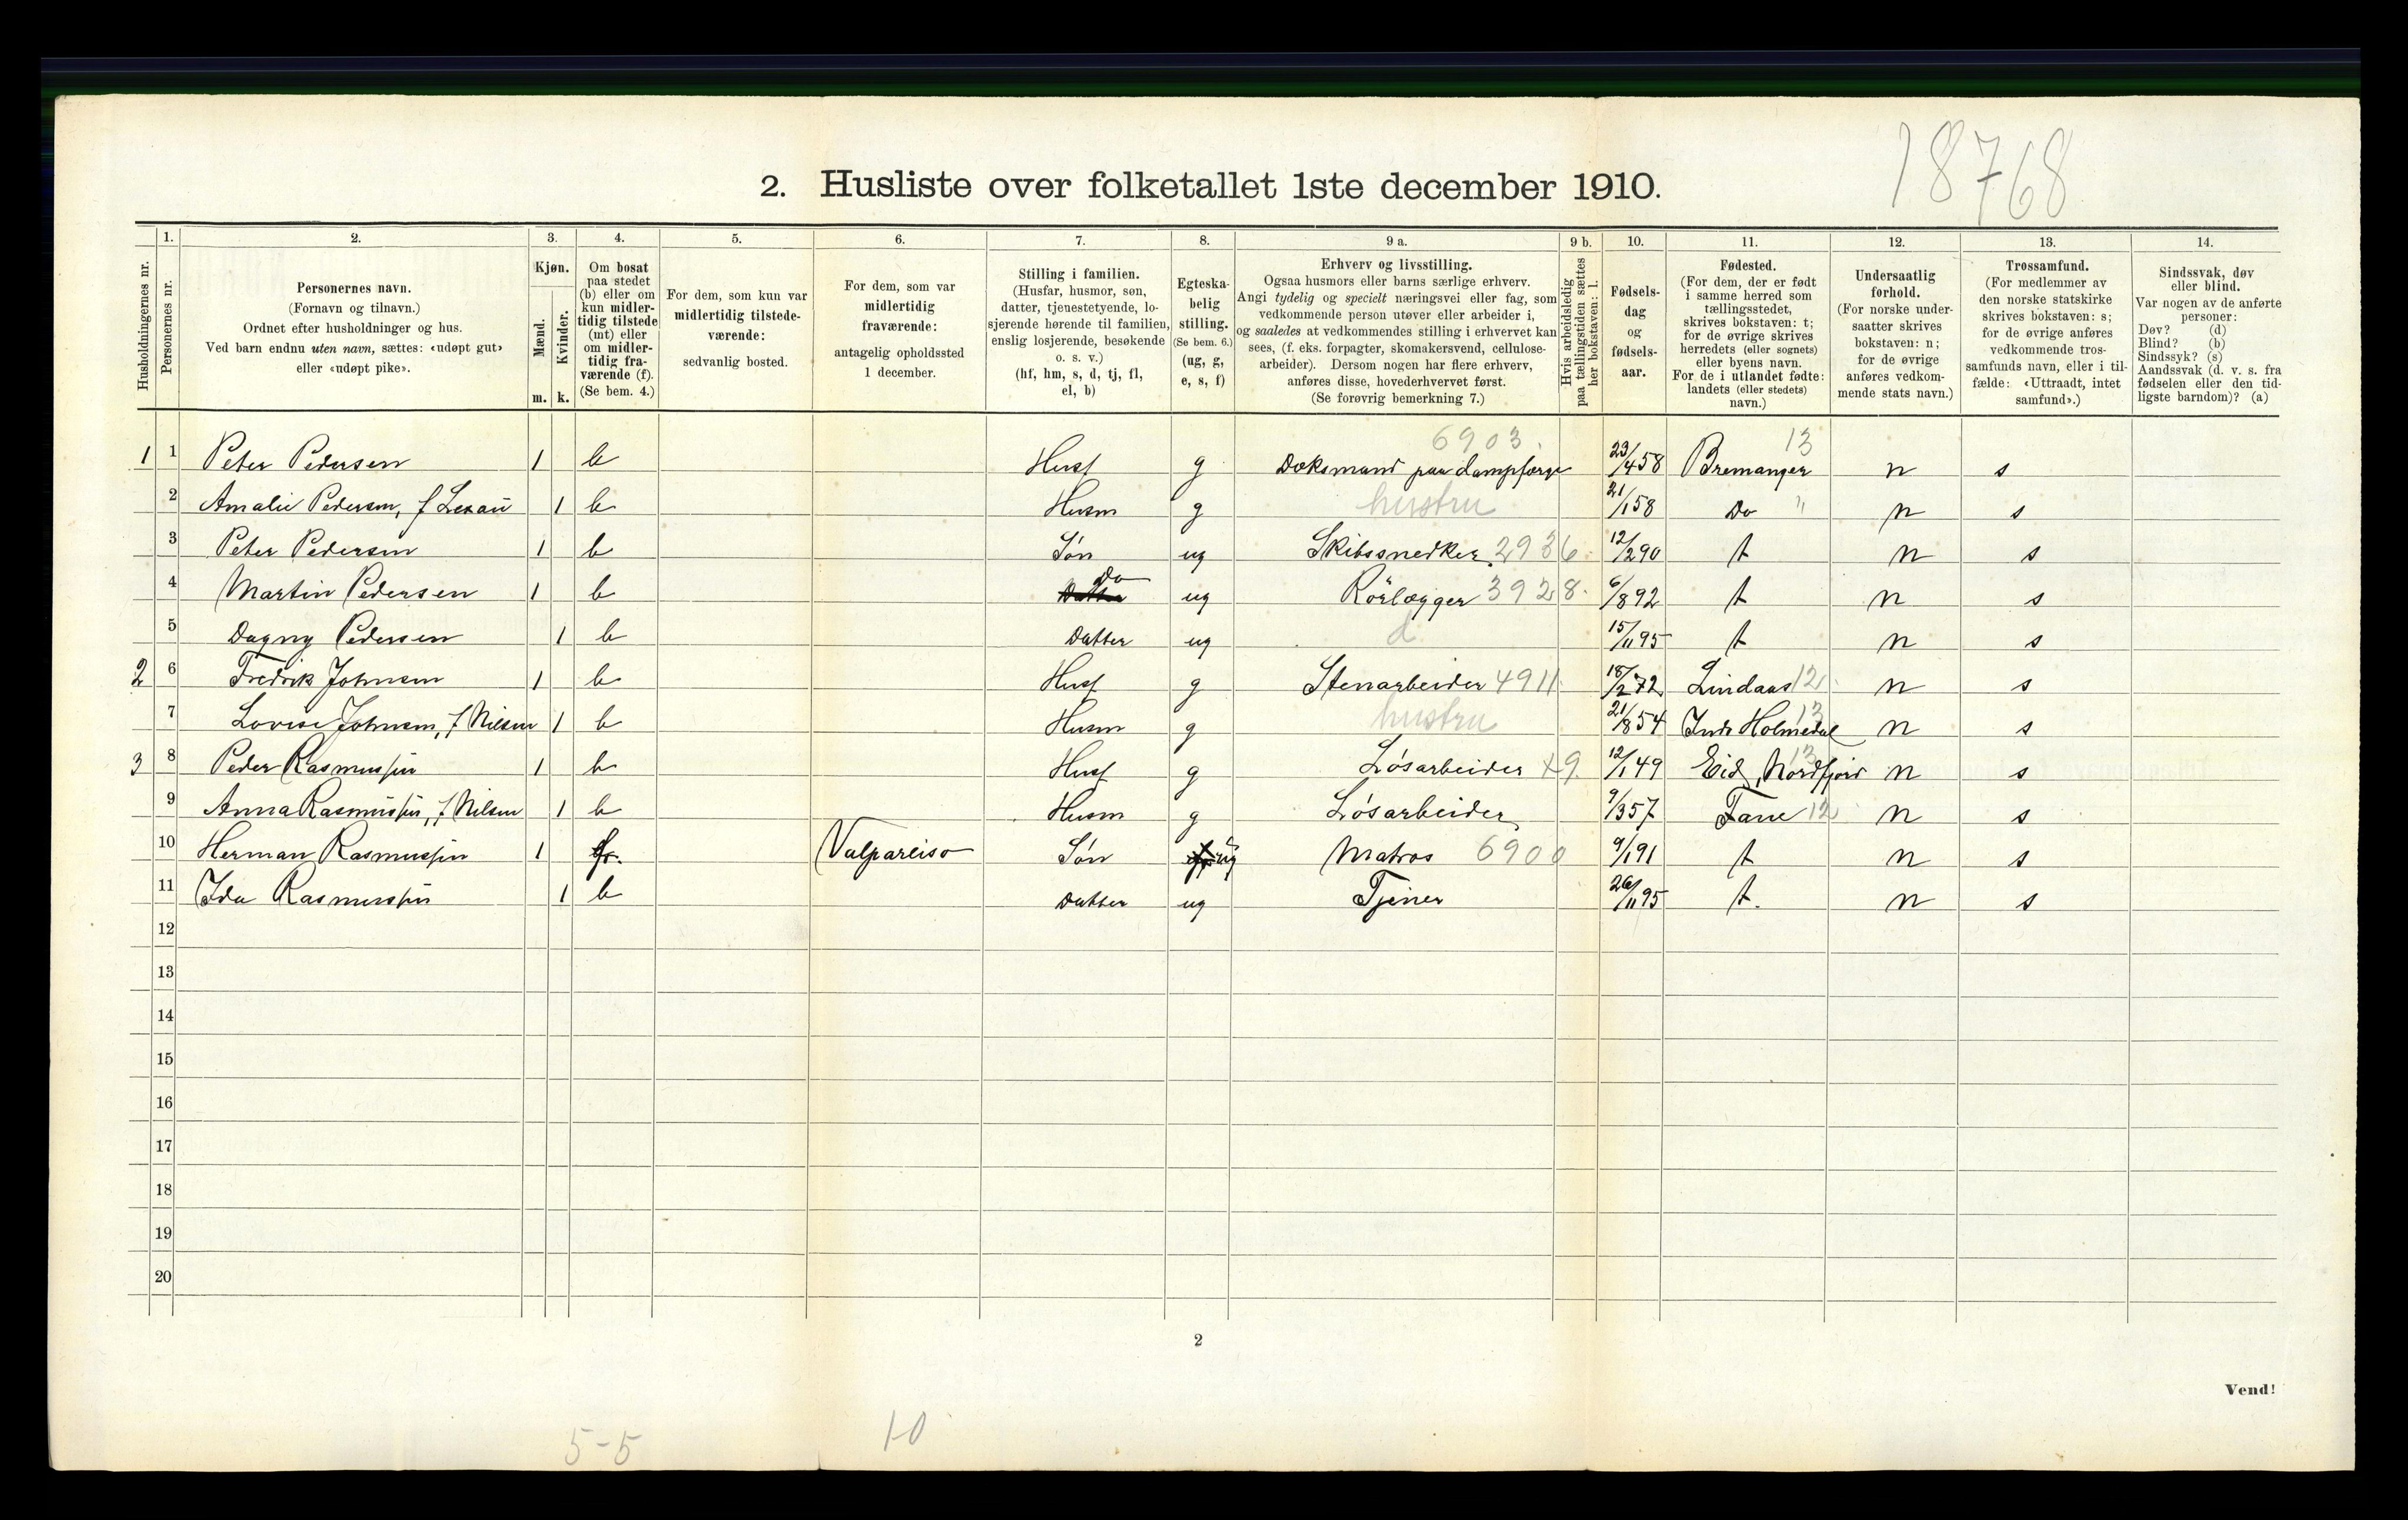 18768
2. Husliste over folketallet 1ste december 1910.
Husholdningernes nr.
1.
Personernes nr.
2.
Personernes navn.
(Fornavn og tilnavn.)
Ordnet efter husholdninger og hus.
Ved barn endnu uten navn, sættes: «udøpt gut»
eller «udøpt pike».
3.
Kjøn.
Mænd.
Kvinder.
m. k.
4.
Om bosat
paa stedet
(b) eller om
kun midler-
tidig tilstede
(mt) eller
om midler-
tidig fra-
værende (f).
(Se bem. 4.)
5.
For dem, som kun var
midlertidig tilstede-
værende:
sedvanlig bosted.
6.
For dem, som var
midlertidig
fraværende:
antagelig opholdssted
1 december.
7.
Stilling i familien.
(Husfar, husmor, søn,
datter, tjenestetyende, lo-
sjerende hørende til familien,
enslig losjerende, besøkende
o. s. v.)
(hf, hm, s, d, tj, fl,
el, b)
8.
Egteska-
belig
stilling.
(Se bem. 6.)
(ug, g,
e, s, f)
9 a.
Erhverv og livsstilling.
Ogsaa husmors eller barns særlige erhverv.
Angi tydelig og specielt næringsvei eller fag, som
vedkommende person utøver eller arbeider i,
og saaledes at vedkommendes stilling i erhvervet kan
sees, (f. eks. forpagter, skomakersvend, cellulose-
arbeider). Dersom nogen har flere erhverv,
anføres disse, hovederhvervet først.
(Se forøvrig bemerkning 7.)
9 b.
Hvis arbeidsledig
paa tællingstiden sættes
her bokstaven: l.
10.
Fødsels-
dag
og
fødsels-
aar.
11.
Fødested.
(For dem, der er født
i samme herred som
tællingsstedet,
skrives bokstaven: t;
for de øvrige skrives
herredets (eller sognets)
eller byens navn.
For de i utlandet fødte:
landets (eller stedets)
navn.)
12.
Undersaatlig
forhold.
(For norske under-
saatter skrives
bokstaven: n;
for de øvrige
anføres vedkom-
mende stats navn.)
13.
Trossamfund.
(For medlemmer av
den norske statskirke
skrives bokstaven: s;
for de øvrige anføres
vedkommende tros-
samfunds navn, eller i til-
fælde: «Uttraadt, intet
samfund».)
14.
Sindssvak, døv
eller blind.
Var nogen av de anførte
personer:
Døv? (d)
Blind? (b)
Sindssyk? (s)
Aandssvak (d. v. s. fra
fødselen eller den tid-
ligste barndom)? (a)
6903. 13
1 1 Peter Pedersen 1 b Husf g Dæksmand paa dampfærge 23/4 58 Bremanger n s
2 Amalie Pedersen, f 1 b Husm g hustru 21/1 58 Do " n s
3 Peter Pedersen 1 b Søn ug Skibssnedker 2936. 12/2 90 t n s
4 Martin Pedersen 1 b Datter Do ug Rörlægger 3928. 6/8 92 t n s
5 Dagny Pedersen 1 b Datter ug d 15/11 95 t n s
2 6 Fredrik Johnsen 1 b Husf g Stenarbeider 4911 18/2 72 Lindaas 12 n s
7 Lovise Johnsen, f Nilsen 1 b Husm g hustru 21/8 54 Indr Holmedal 13 n s
3 8 Peder Rasmussen 1 b Husf g Løsarbeider x9 12/1 49 Eid, Nordfjord 13 n s
9 Anna Rasmussen, f Nilsen 1 b Husm g Løsarbeider 9/3 57 Fane 12 n s
10 Herman Rasmussen 1 f. Valpareiso Søn ug Matros 6900 9/1 91 t n s
11 Ida Rasmussen 1 b Datter ug Tjener 26/11 95 t. n s
12
13
14
15
16
17
18
19
20
2
Vend!
5-5 10